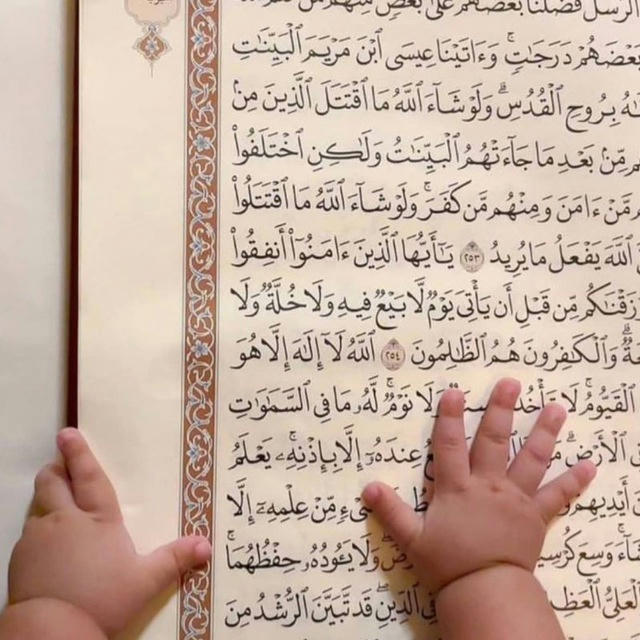 الرسل فضلنا بعضهم على بعض منهم من
بَعۡضَهُمۡ دَرَجَٰتٖۚ وَءَاتَيۡنَا عِيسَى ٱبۡنَ مَرۡيَمَ ٱلۡبَيِّنَٰتِ
بِرُوحِ ٱلۡقُدُسِۗ وَلَوۡ شَآءَ ٱللَّهُ مَا ٱقۡتَتَلَ ٱلَّذِينَ مِنۢ
مِّنۢ بَعۡدِ مَا جَآءَتۡهُمُ ٱلۡبَيِّنَٰتُ وَلَٰكِنِ ٱخۡتَلَفُواْ
مَّنۡ ءَامَنَ وَمِنۡهُم مَّن كَفَرَۚ وَلَوۡ شَآءَ ٱللَّهُ مَا ٱقۡتَتَلُواْ
ٱللَّهَ يَفۡعَلُ مَا يُرِيدُ ٢٥٣ يَٰٓأَيُّهَا ٱلَّذِينَ ءَامَنُوٓاْ أَنفِقُواْ
رَزَقۡنَٰكُم مِّن قَبۡلِ أَن يَأۡتِيَ يَوۡمٞ لَّا بَيۡعٞ فِيهِ وَلَا خُلَّةٞ وَلَا
وَٱلۡكَٰفِرُونَ هُمُ ٱلظَّٰلِمُونَ ٢٥٤ ٱللَّهُ لَآ إِلَٰهَ إِلَّا هُوَ
ٱلۡقَيُّومُۚ لَا تَأۡخُذُ وَلَا نَوۡمٞۚ لَّهُۥ مَا فِي ٱلسَّمَٰوَٰتِ
ٱلۡأَرۡضِۗ عِندَهُۥٓ إِلَّا بِإِذۡنِهِۦۚ يَعۡلَمُ
أَيۡدِيهِمۡ مِّنۡ عِلۡمِهِۦٓ إِلَّا
وَسِعَ وَلَا يَـُٔودُهُۥ حِفۡظُهُمَاۚ
ٱلۡعَلِيُّ ٱلدِّينِۖ قَد تَّبَيَّنَ ٱلرُّشۡدُ مِنَ